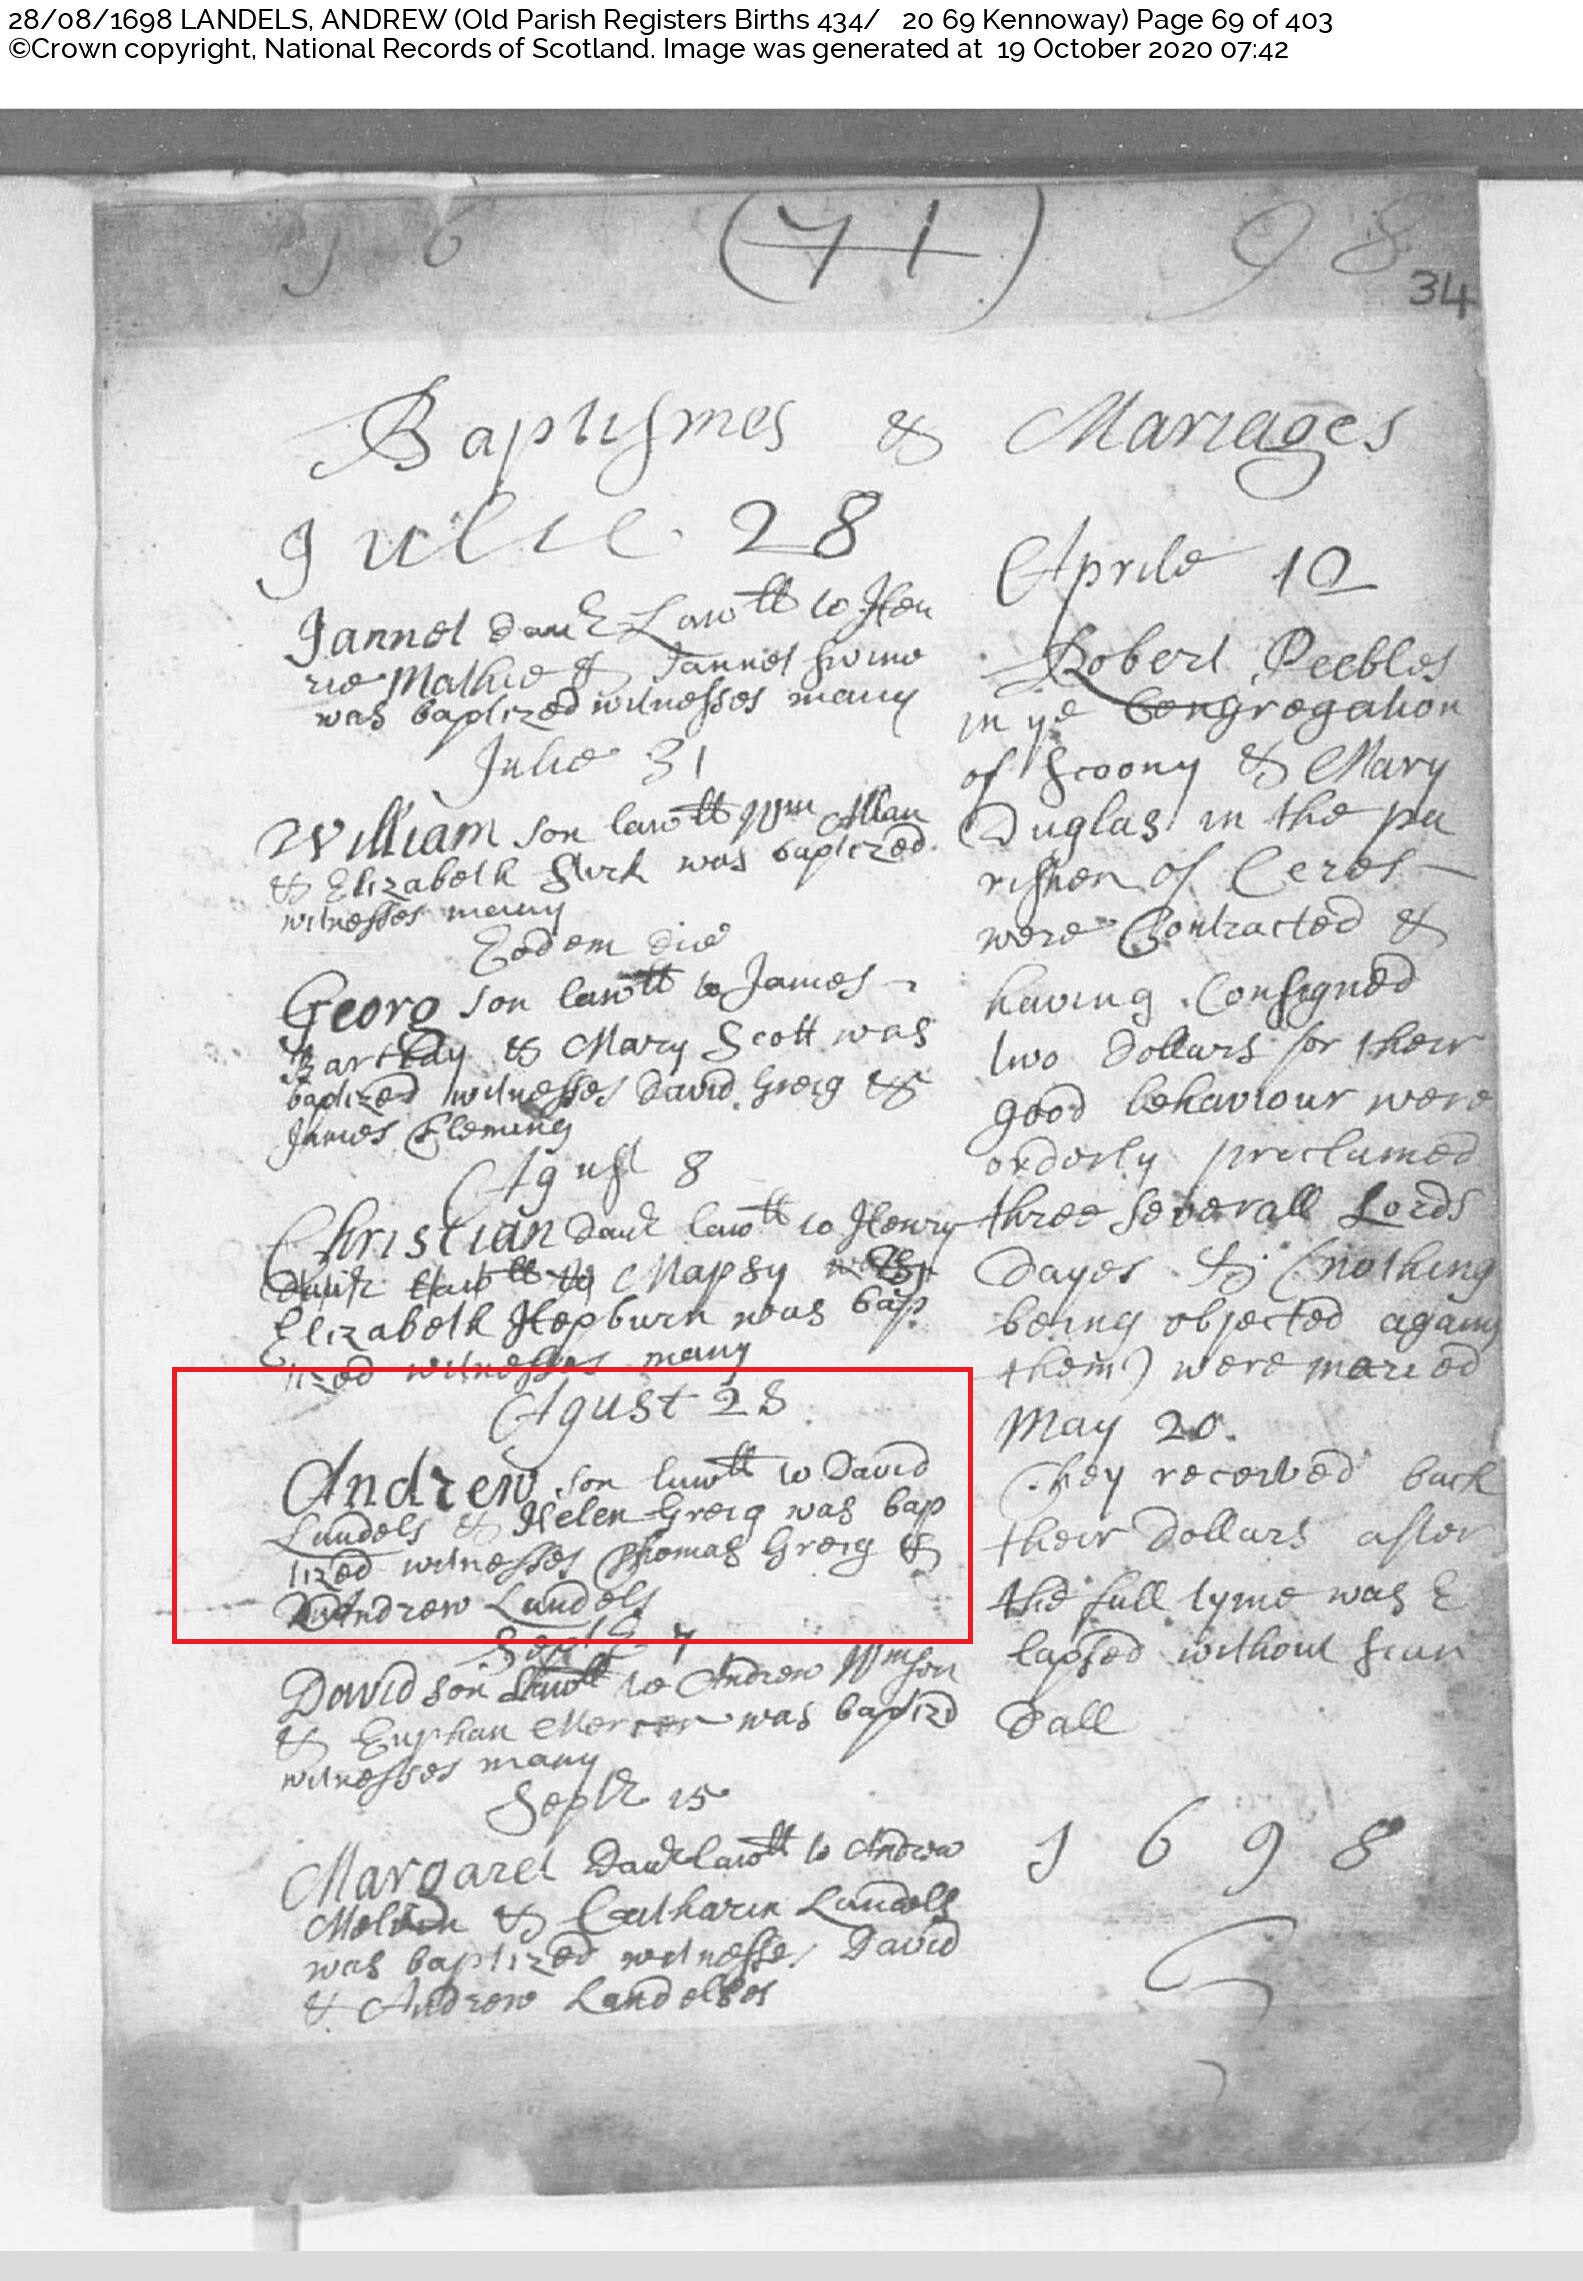 28/08/1698 LANDELS, ANDREW (Old Parish Registers Births 434/ 20 69 Kennoway) Page 69 of 403
©Crown copyright, National Records of Scotland. Image was generated at 19 October 2020 07:42
(71)
98
34
Baptismes & Mariages
Julie 28
Jannet daur Lawtt to Hen
rie Mathie & Jannet
was baptized witnesses many
Julie 31
William son lawtt Wm Allan
& Elizabeth was baptized
witnesses many
Eodem die
Georg son lawtt to James
Barclay & Mary Scott was
baptized witnesses David Greig &
James Fleming
Agust 8
Christian daur lawtt to Henry
daur lawtt to Mapsy was
Elizabeth Hepburn was bap
tized witnesses many
Agust 28
Andrew son lawtt to David
Landels & Helen Greig was bap
tized witnesses Thomas Greig &
Andrew Landels
Septr 7
David son lawtt to Andrew Wmson
& Euphan Mercer was baptizd
witnesses many
Septr 15
Margaret Daur lawtt to Andrew
& Catharin Landells
was baptized witnesses David
& Andrew Landelses
Aprile 10
Robert Peebles
in ye Congregation
of Scoony & Mary
Duglas in the pa
rishen of Ceres
were Contracted &
having Consigned
two Dollars for their
good behaviour were
orderly proclamed
three severall Lords
Dayes & (nothing
being objected against
them) were maried
May 20.
They received back
their Dollars after
the full tyme was E
lapsed without scan
dall
1698